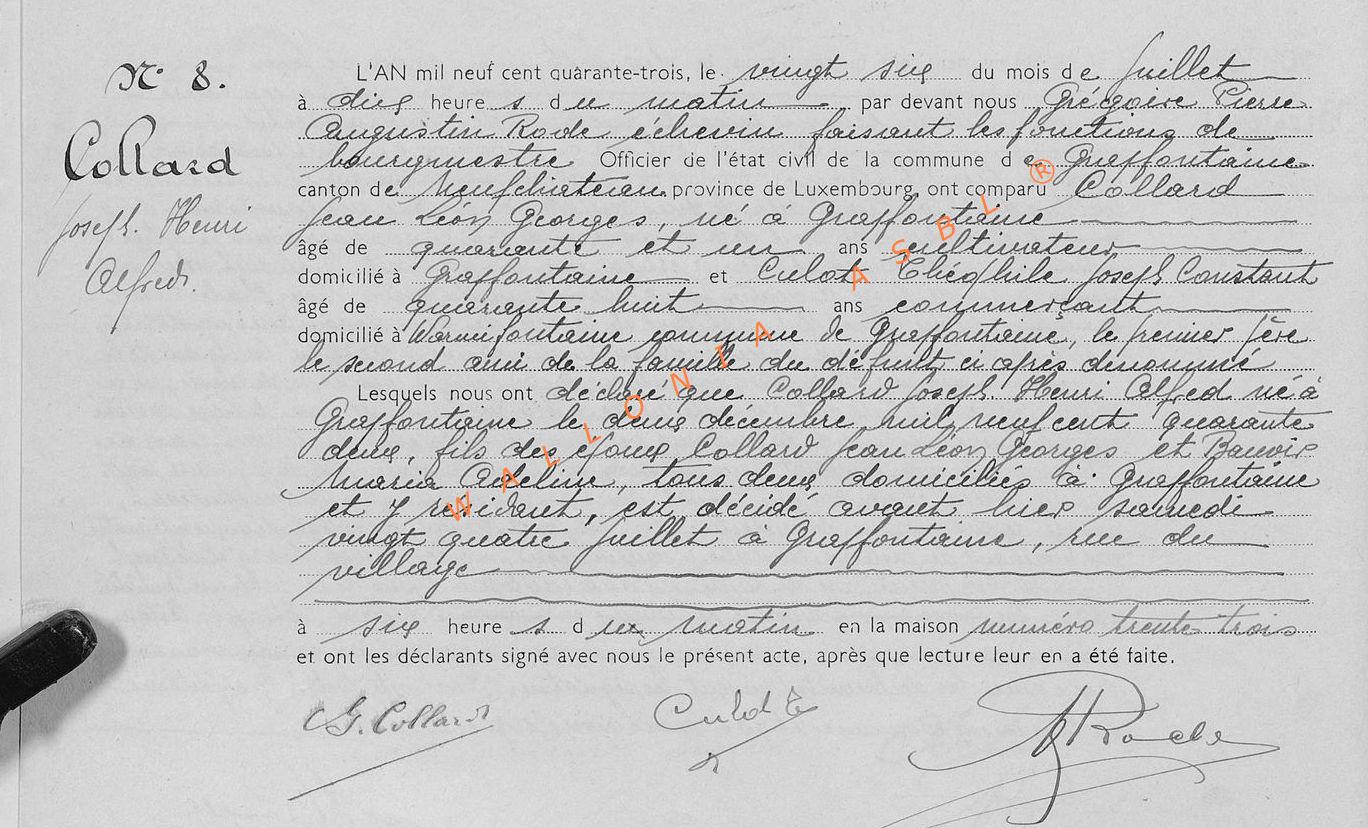 N° 8.
Collard
Joseph. Henri
Alfred.
L'AN mil neuf cent quarante-trois, le vingt six du mois de juillet
à dix heures du matin par devant nous Grégoire Pierre
Augustin Rode échevin faisant les fonctions de
bourgmestre Officier de l'état civil de la commune de Graffontaine
canton de Neufchateau province de Luxembourg, ont comparu Collard
Jean Léon Georges, né à Graffontaine
âgé de quarante et un ans cultivateur
domicilié à Graffontaine et Culot Théophile Joseph Constant
âgé de quarante huit ans commerçant
domicilié à Warmifontaine commune de Graffontaine, le premier père
le second ami de la famille du défunt ci après dénommé
Lesquels nous ont déclaré que Collard Joseph Henri Alfred né à
Graffontaine le deux décembre mil neuf cent quarante
deux, fils des époux Collard Jean Léon Georges et
Maria Adeline, tous deux domiciliés à Graffontaine
et y résidant, est décidé avant hier samedi
vingt quatre juillet à Graffontaine, rue du
village
à six heures du matin en la maison numéro trente trois
et ont les déclarants signé avec nous le présent acte, après que lecture leur en a été faite.
G. Collard Culot
WALLONIA ASBL ®